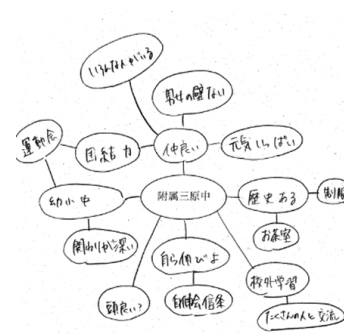 いろんな人がいる
男女の壁ない
運動会
団結力
仲良い
元気いっぱい
幼小中
附属三原中
歴史ある
制服
関わりが深い
お茶室
自ら伸びよ
校外学習
頭良い?
自伸会信条
たくさんの人と交流